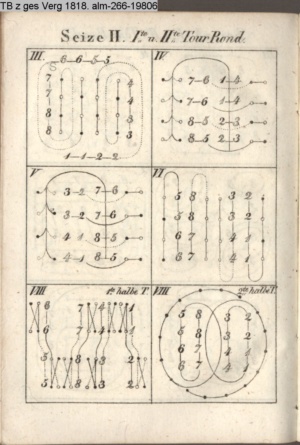 TB z ges Verg 1818. alm-266-19806
Seize II. I.te u. II.te Tour Rond.
III.
6-6-5-5
7
7
8
8
4
4
3
3
1-1-2-2
IV
7-6 1-4
7-6 1-4
8-5 2-3
8-5 2-3
V
3-2 7-6
3-2 7-6
4-1 8-5
4-1 8-5
VI
5 8 3 2
5 8 3 2
6 7 4 1
6 7 4 1
VII 1te halbe T.
6 7 4 1
6 7 4 1
5 8 3 2
5 8 3 2
VIII 2te halbe T.
5 8 3 2
5 8 3 2
6 7 4 1
6 7 4 1